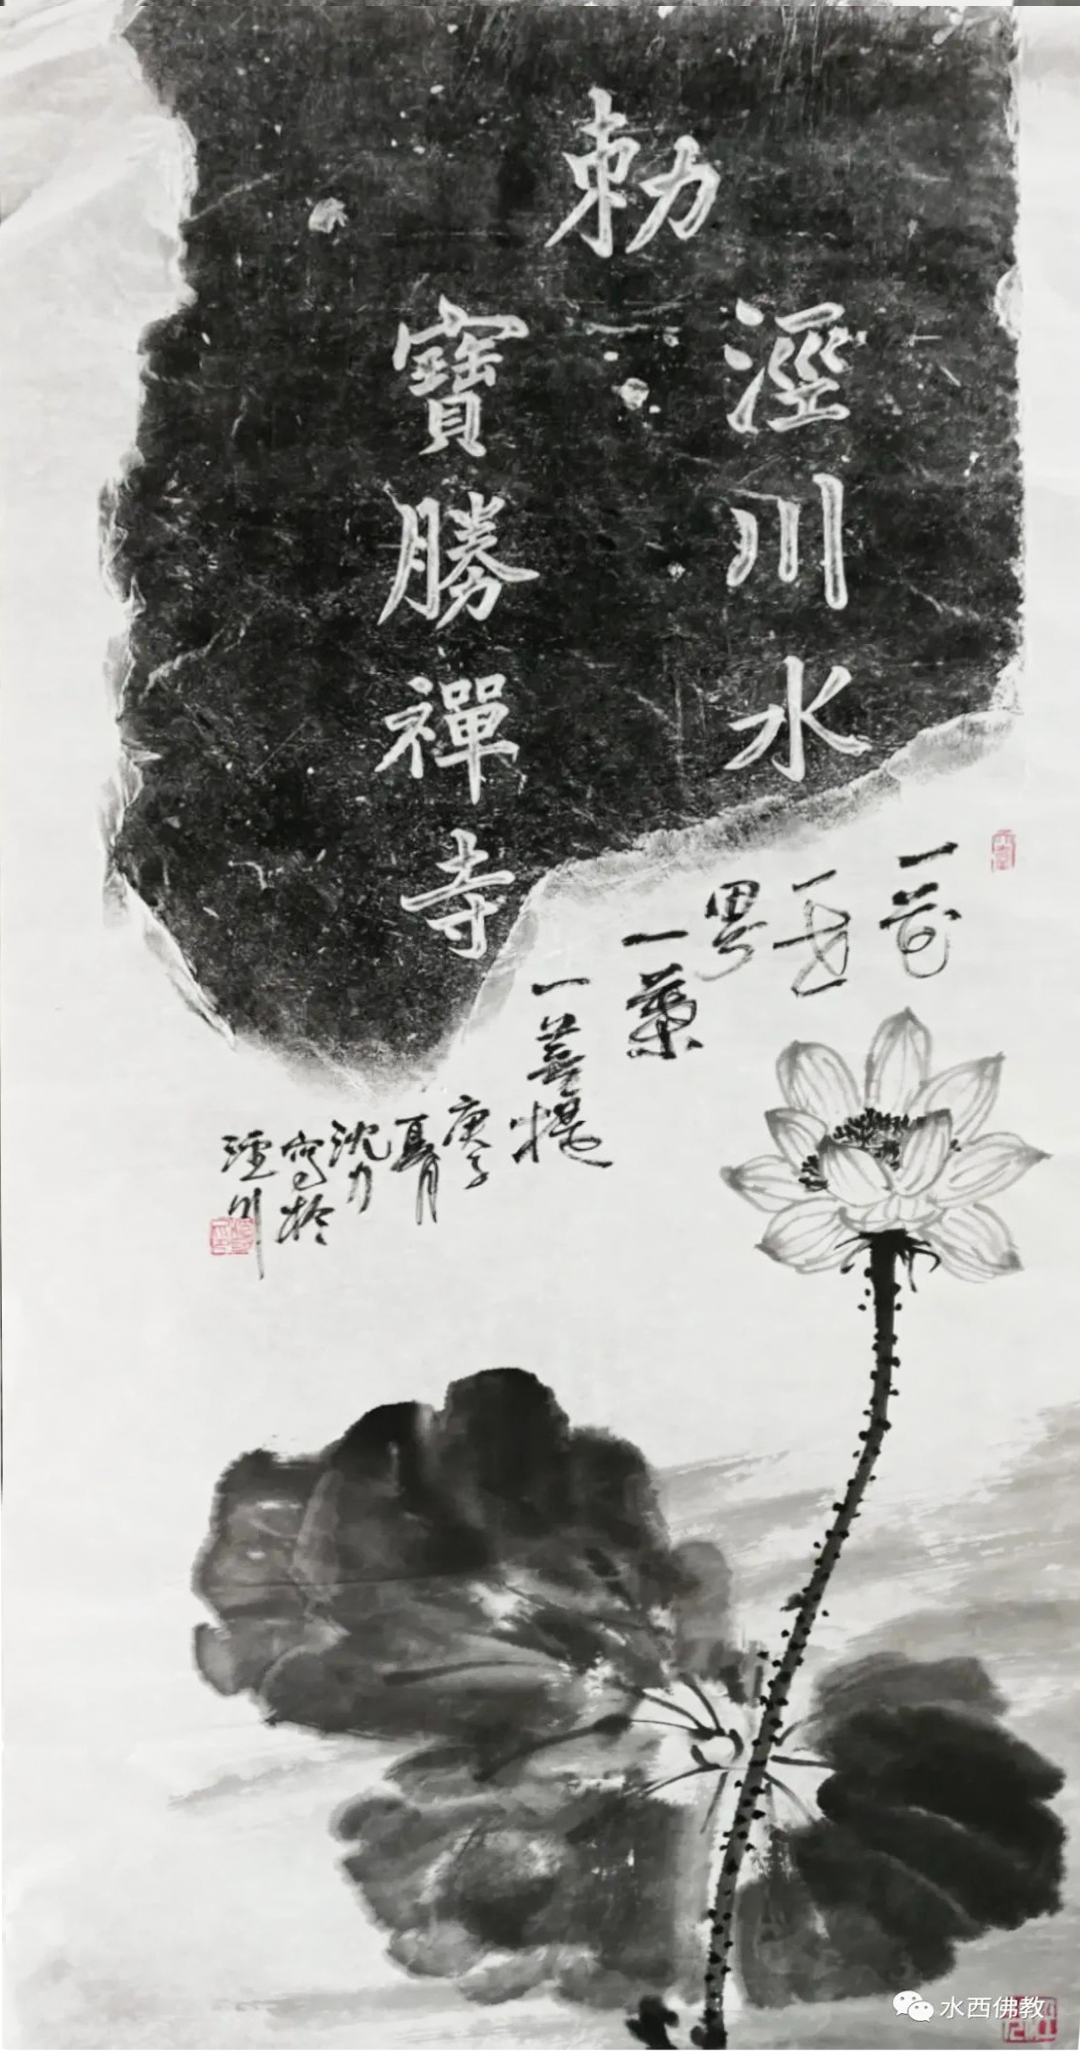 勅
涇川水
寶勝禪寺
一花
一世
界
一葉
一菩提
庚子
夏月
沈力
寫於
涇川
水西佛教